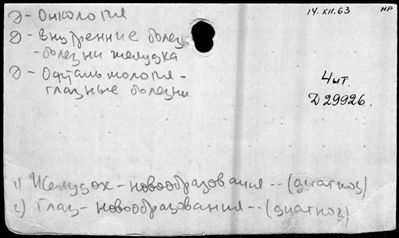 Ə - Онкология
Ə - Внутренние болез-
- болезни желудка
Ə - Офтальмология -
- глазные болезни
14.XII.63
НР
4 шт.
Д 29926.
1) Желудок - новообразования -- (диагноз)
2) Глаз - новообразования -- (диагноз)